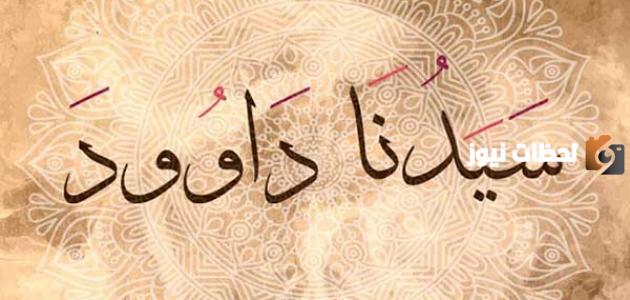 سَيَدُنَا دَاوُودَ
لحظات نيوز